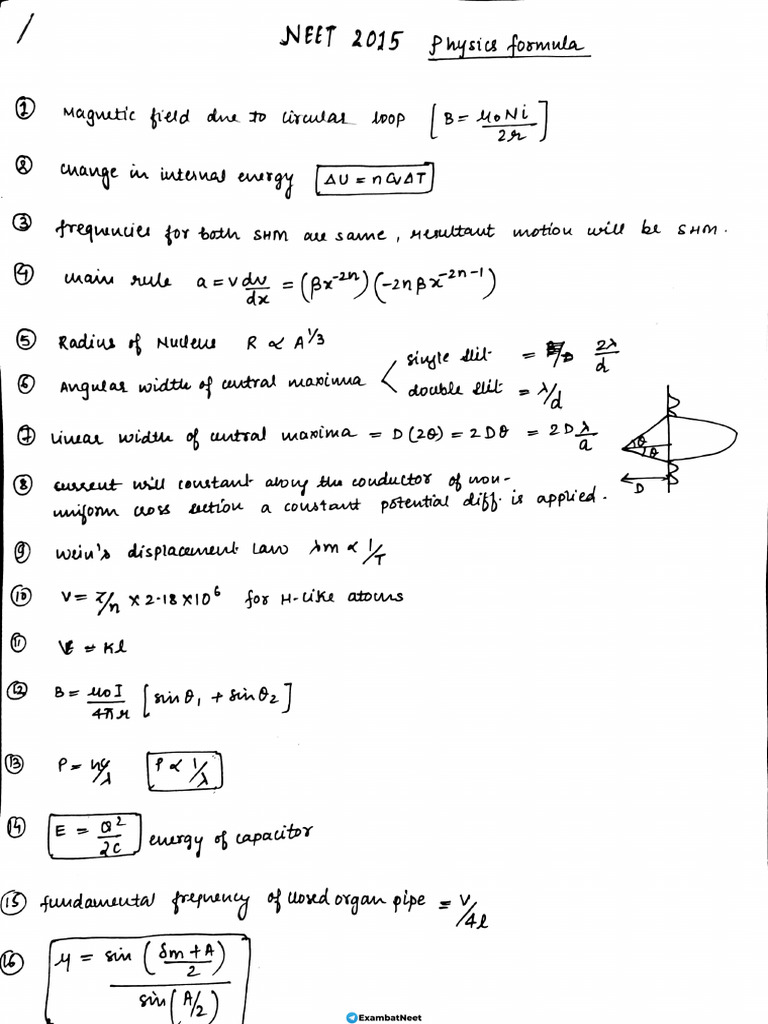 NEET 2015 Physics formula
① Magnetic field due to circular loop [B = μ₀Ni/2r]
② change in internal energy ΔU = nCvΔT
③ frequencies for both SHM are same, resultant motion will be SHM.
④ main rule a = v dv/dx = (βx⁻²ⁿ)(-2nβx⁻²ⁿ⁻¹)
⑤ Radius of Nucleus R ∝ A^1/3
⑥ Angular width of central maxima < single slit = 2λ/d
double slit = λ/d
⑦ Linear width of central maxima = D(2θ) = 2Dθ = 2Dλ/a
θ
θ
D
⑧ current will constant along the conductor of non-
uniform cross section a constant potential diff. is applied.
⑨ wein's displacement Law λm ∝ 1/T
⑩ V = Z/n × 2.18 × 10⁶ for H-like atoms
⑪ E = Kl
⑫ B = μ₀I/4πr [sinθ₁ + sinθ₂]
⑬ P = /λ P ∝ 1/λ
⑭ E = Q²/2C energy of capacitor
⑮ fundamental frequency of closed organ pipe = V/4l
⑯ μ = sin((δm + A)/2)/sin(A/2)
ExambatNeet